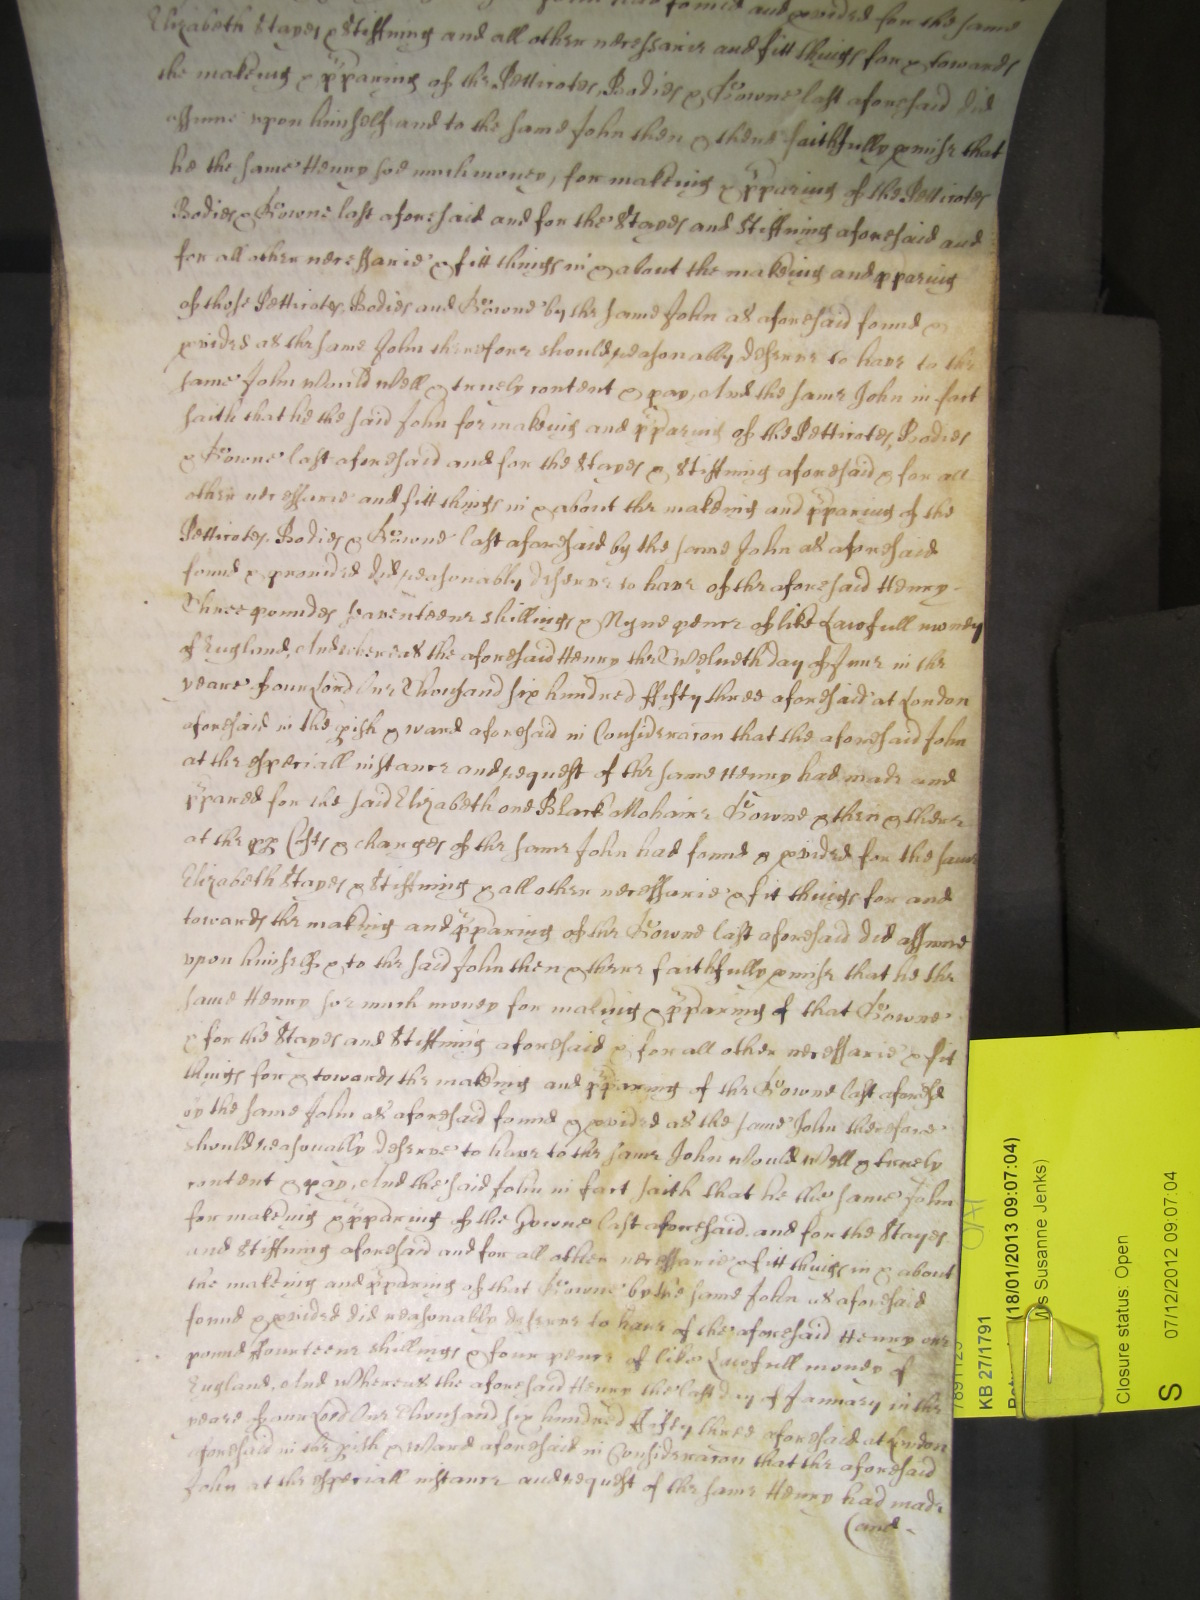 John had found and pvided for the same
Elizabeth Stayes & Stiffning and all other necessarie and fitt things for & towards
the making & ppareing of the Petticotes, Bodies & Gowne last aforesaid did
assume upon himselfe and to the same John then & there faithfully pmise that
he the same Henry soe much money, for making & ppareing of the Petticotes
Bodies & Gowne last aforesaid and for the Stayes and Stiffning aforesaid and
for all other necessarie & fitt things in & about the making and ppareing
of those Petticotes, Bodies and Gowne by the same John as aforesaid found &
pvided as the same John therefore should reasonably deserve to have to the
same John Would Well & truely content & pay, And the same John in fact
saith that he the said John for making and ppareing of the Petticotes, Bodies,
& Gowne last aforesaid and for the Stayes & Stiffning aforesaid & for all
other necessarie and fitt things in & about the making and ppareing of the
Petticotes, Bodies & Gowne last aforesaid by the same John as aforesaid
found & provided did reasonably deserve to have of the aforesaid Henry
Three poundes seaventeene shillings & Nyne pence of like Lawfull money
of England, And whereas the aforesaid Henry the Twelveth day of June in the
yeare of our Lord One Thousand six hundred ffifty three aforesaid at London
aforesaid in the pish & ward aforesaid in Consideracon that the aforesaid John
at the especiall instance and request of the same Henry had made and
ppared for the said Elizabeth one Black Mohaire Gowne & then & there
at the pp Costs & charges of the same John had found & pvided for the same
Elizabeth Stayes & Stiffning & all other necessarie & fit things for and
towards the making and ppareing of the Gowne last aforesaid did assume
upon himselfe & to the said John then & there faithfully pmise that he the
same Henry soe much money for making & ppareing of that Gowne
& for the Stayes and Stiffning aforesaid & for all other necessarie & fit
things for & towards the making and ppareing of the Gowne last aforesd
by the same John as aforesaid found & pvided as the same John therefore
should reasonably deserve to have to the same John Would Well & truely
content & pay, And the said John in fact saith that he the same John
for making & ppareing of the Gowne last aforesaid and for the Stayes
and Stiffning aforesaid and for all other necessarie & fitt things in & about
the making and ppareing of that Gowne by the same John as aforesaid
found & pvided did reasonably deserve to have of the aforesaid Henry one
pound ffourteene shillings & four pence of like Lawfull money of
England, And Whereas the aforesaid Henry the last day of January in the
yeare of our Lord One Thousand six hundred ffifty three aforesaid at London
aforesaid in the pish & Ward aforesaid in Consideracon that the aforesaid
John at the especiall instance and request of the same Henry had made
(and
7891125
KB 27/1791
(18/01/2013 09:07:04)
Susanne Jenks)
Closure status: Open
S 07/12/2012 09:07:04